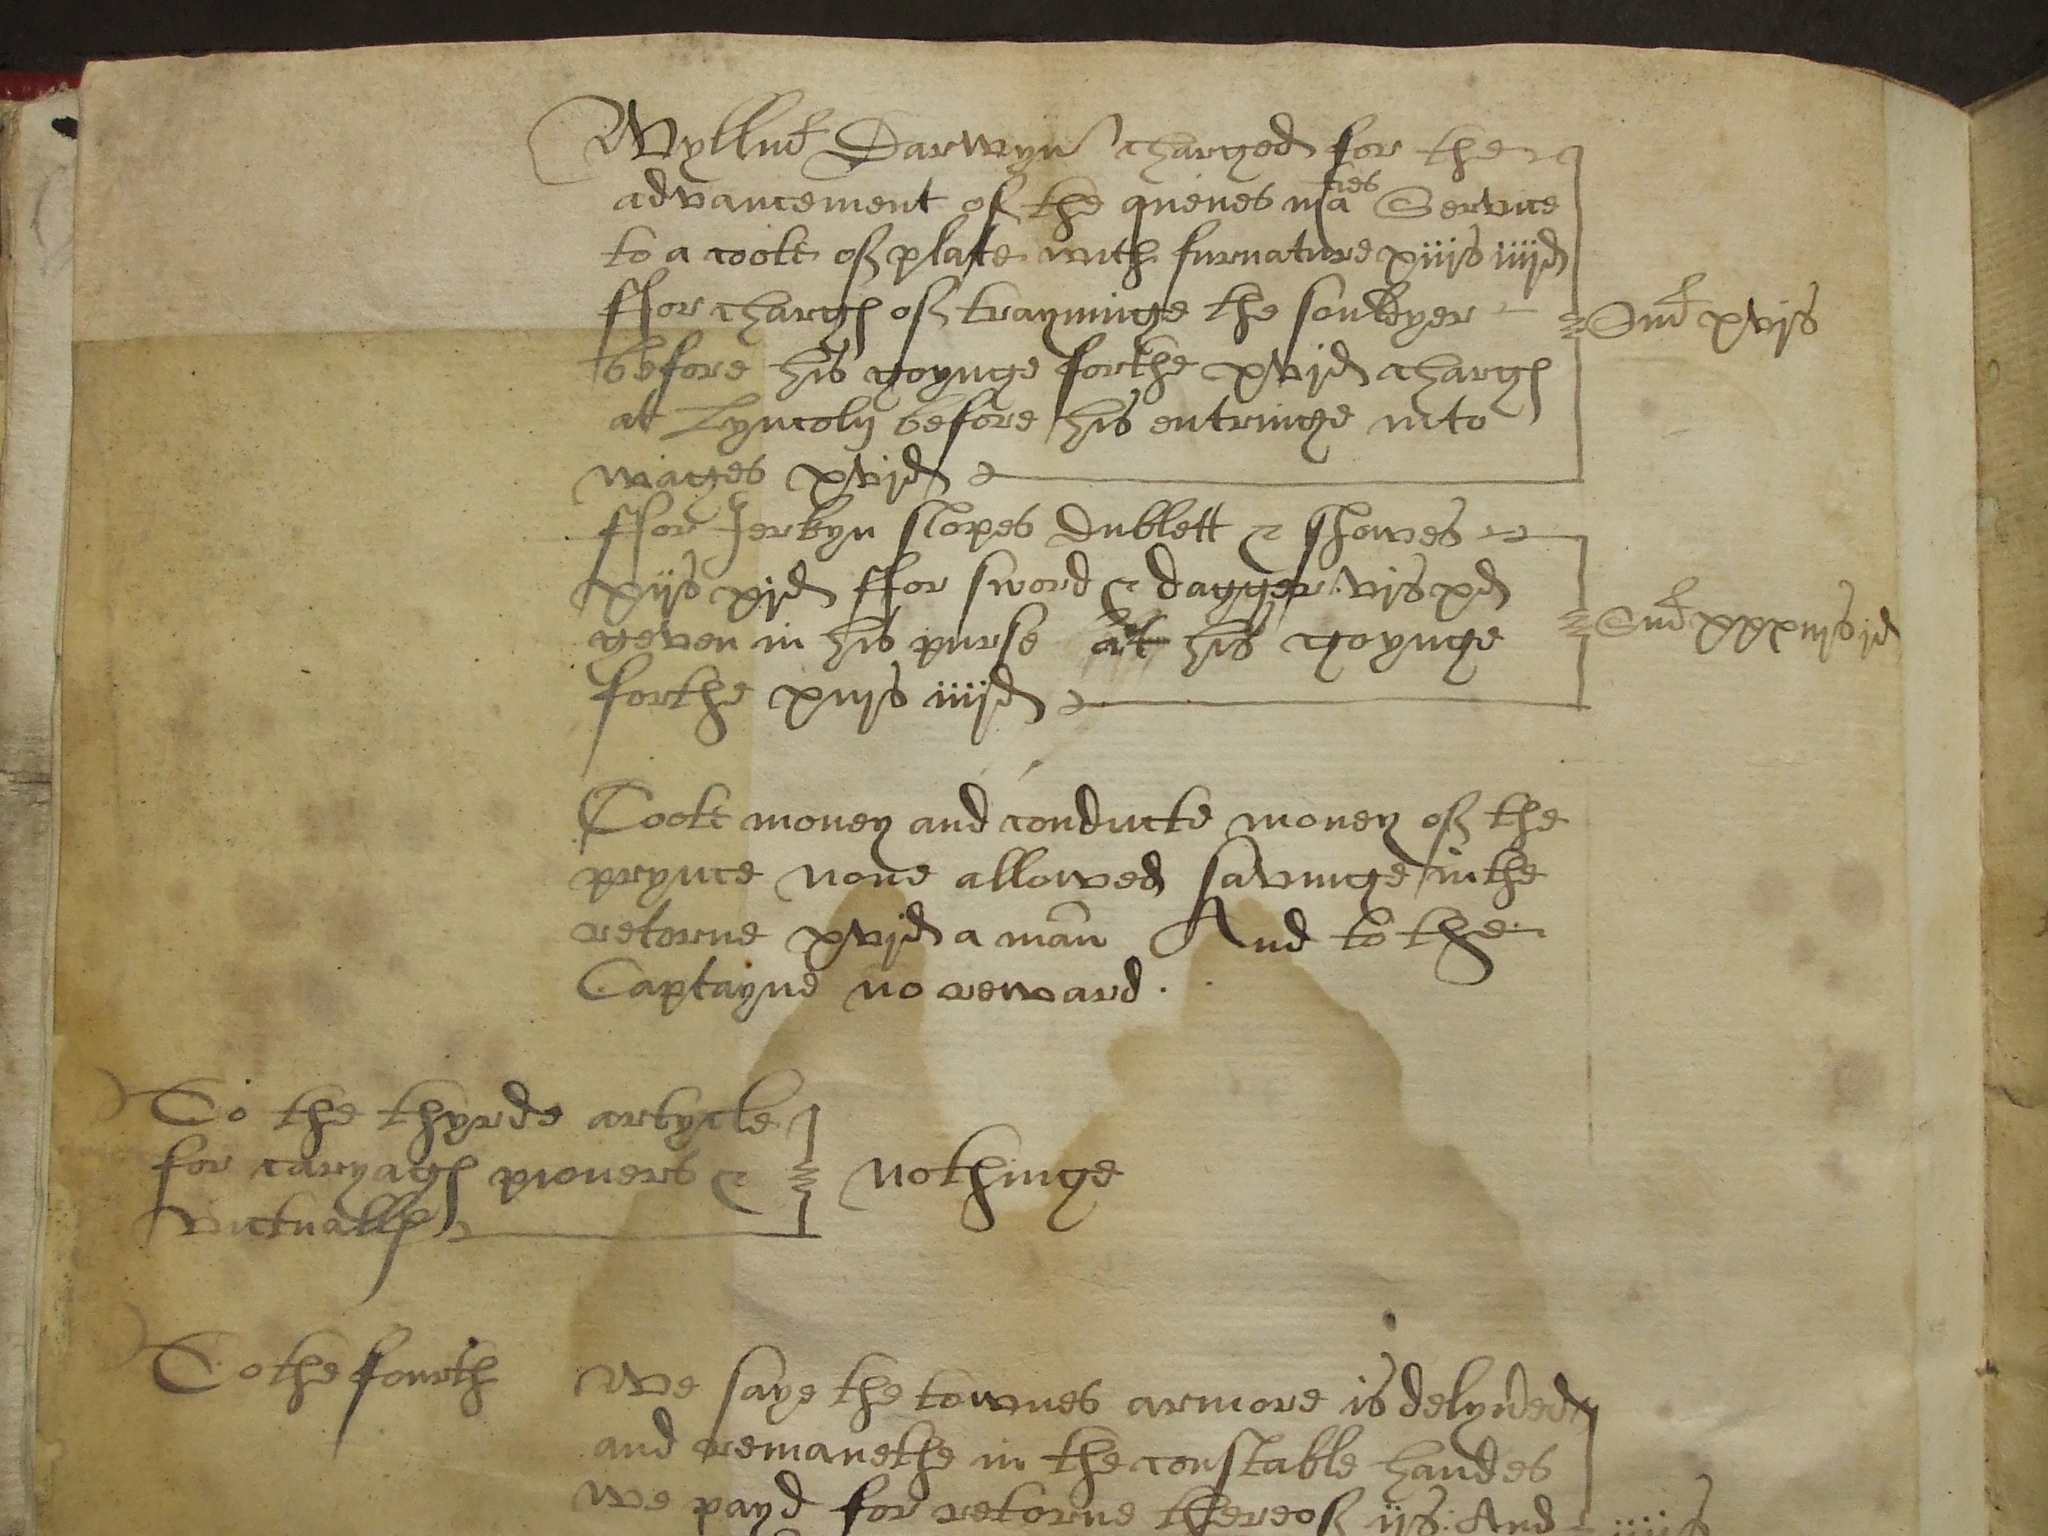 Wyllm Darwyn charged for the
advancement of the quenes maties Service
to a coote of plate with furnature xiijs iiijd
ffor charges of trayninge the souldyer
before his goynge forthe xvjd charges
at Lyncoln before his entringe into
wages xvjd
Sma xvjs
ffor Jerkyn slopes dublett & showes
xijs xjd ffor sword & dagger vjs xd
geven in his purse at his goynge
forthe xiijs iiijd
Sma xxxiijs id
Coote money and conducte money of the
prynce none allowed savinge in the
retorne xvjd a man And to the
Captayne no reward.
To the thyrde artycle
for caryages pioners &
victualles
nothinge
To the fourth
We saye the townes armore is delyvered
and remanethe in the constable handes
we payd for retorne thereof ijs. And
iiijs